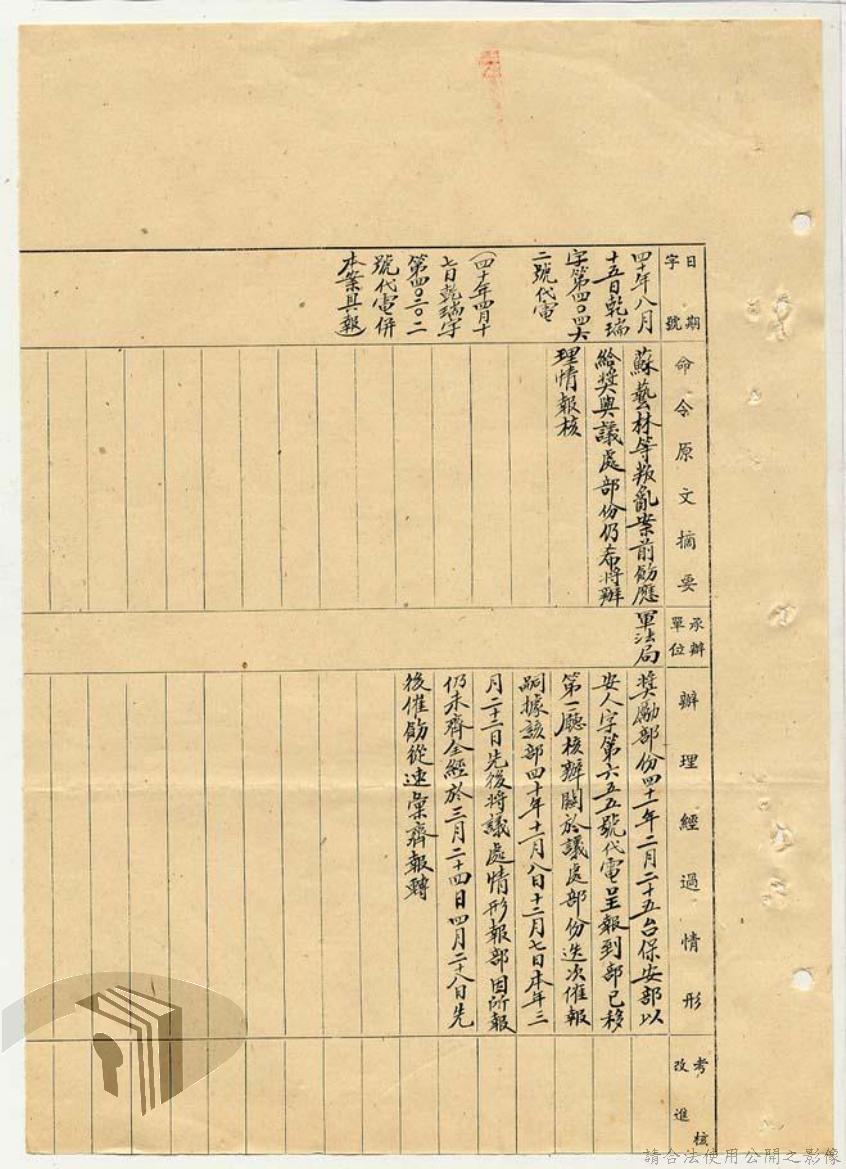 日期
字號
四十年八月
十五日乾瑞
字第四〇四六
二號代電
（四十年四月十
七日乾瑞字
第四〇二〇二
號代電併
本案具報）
命令原文摘要
蘇藝林等叛亂案前飭應
給獎與議處部份仍希將辦
理情報核
承辦
單位
軍法局
辦理經過情形
獎勵部份四十一年二月二十五台保安部以
安人字第六五五號代電呈報到部已移
第一廳核辦關於議處部份迭次催報
嗣據該部四十年十一月八日十二月七日本年三
月二十二日先後將議處情形報部因所報
仍未齊全經於三月二十四日四月二十八日先
後催飭從速彙齊報轉
考核
改進
請合法使用公開之影像